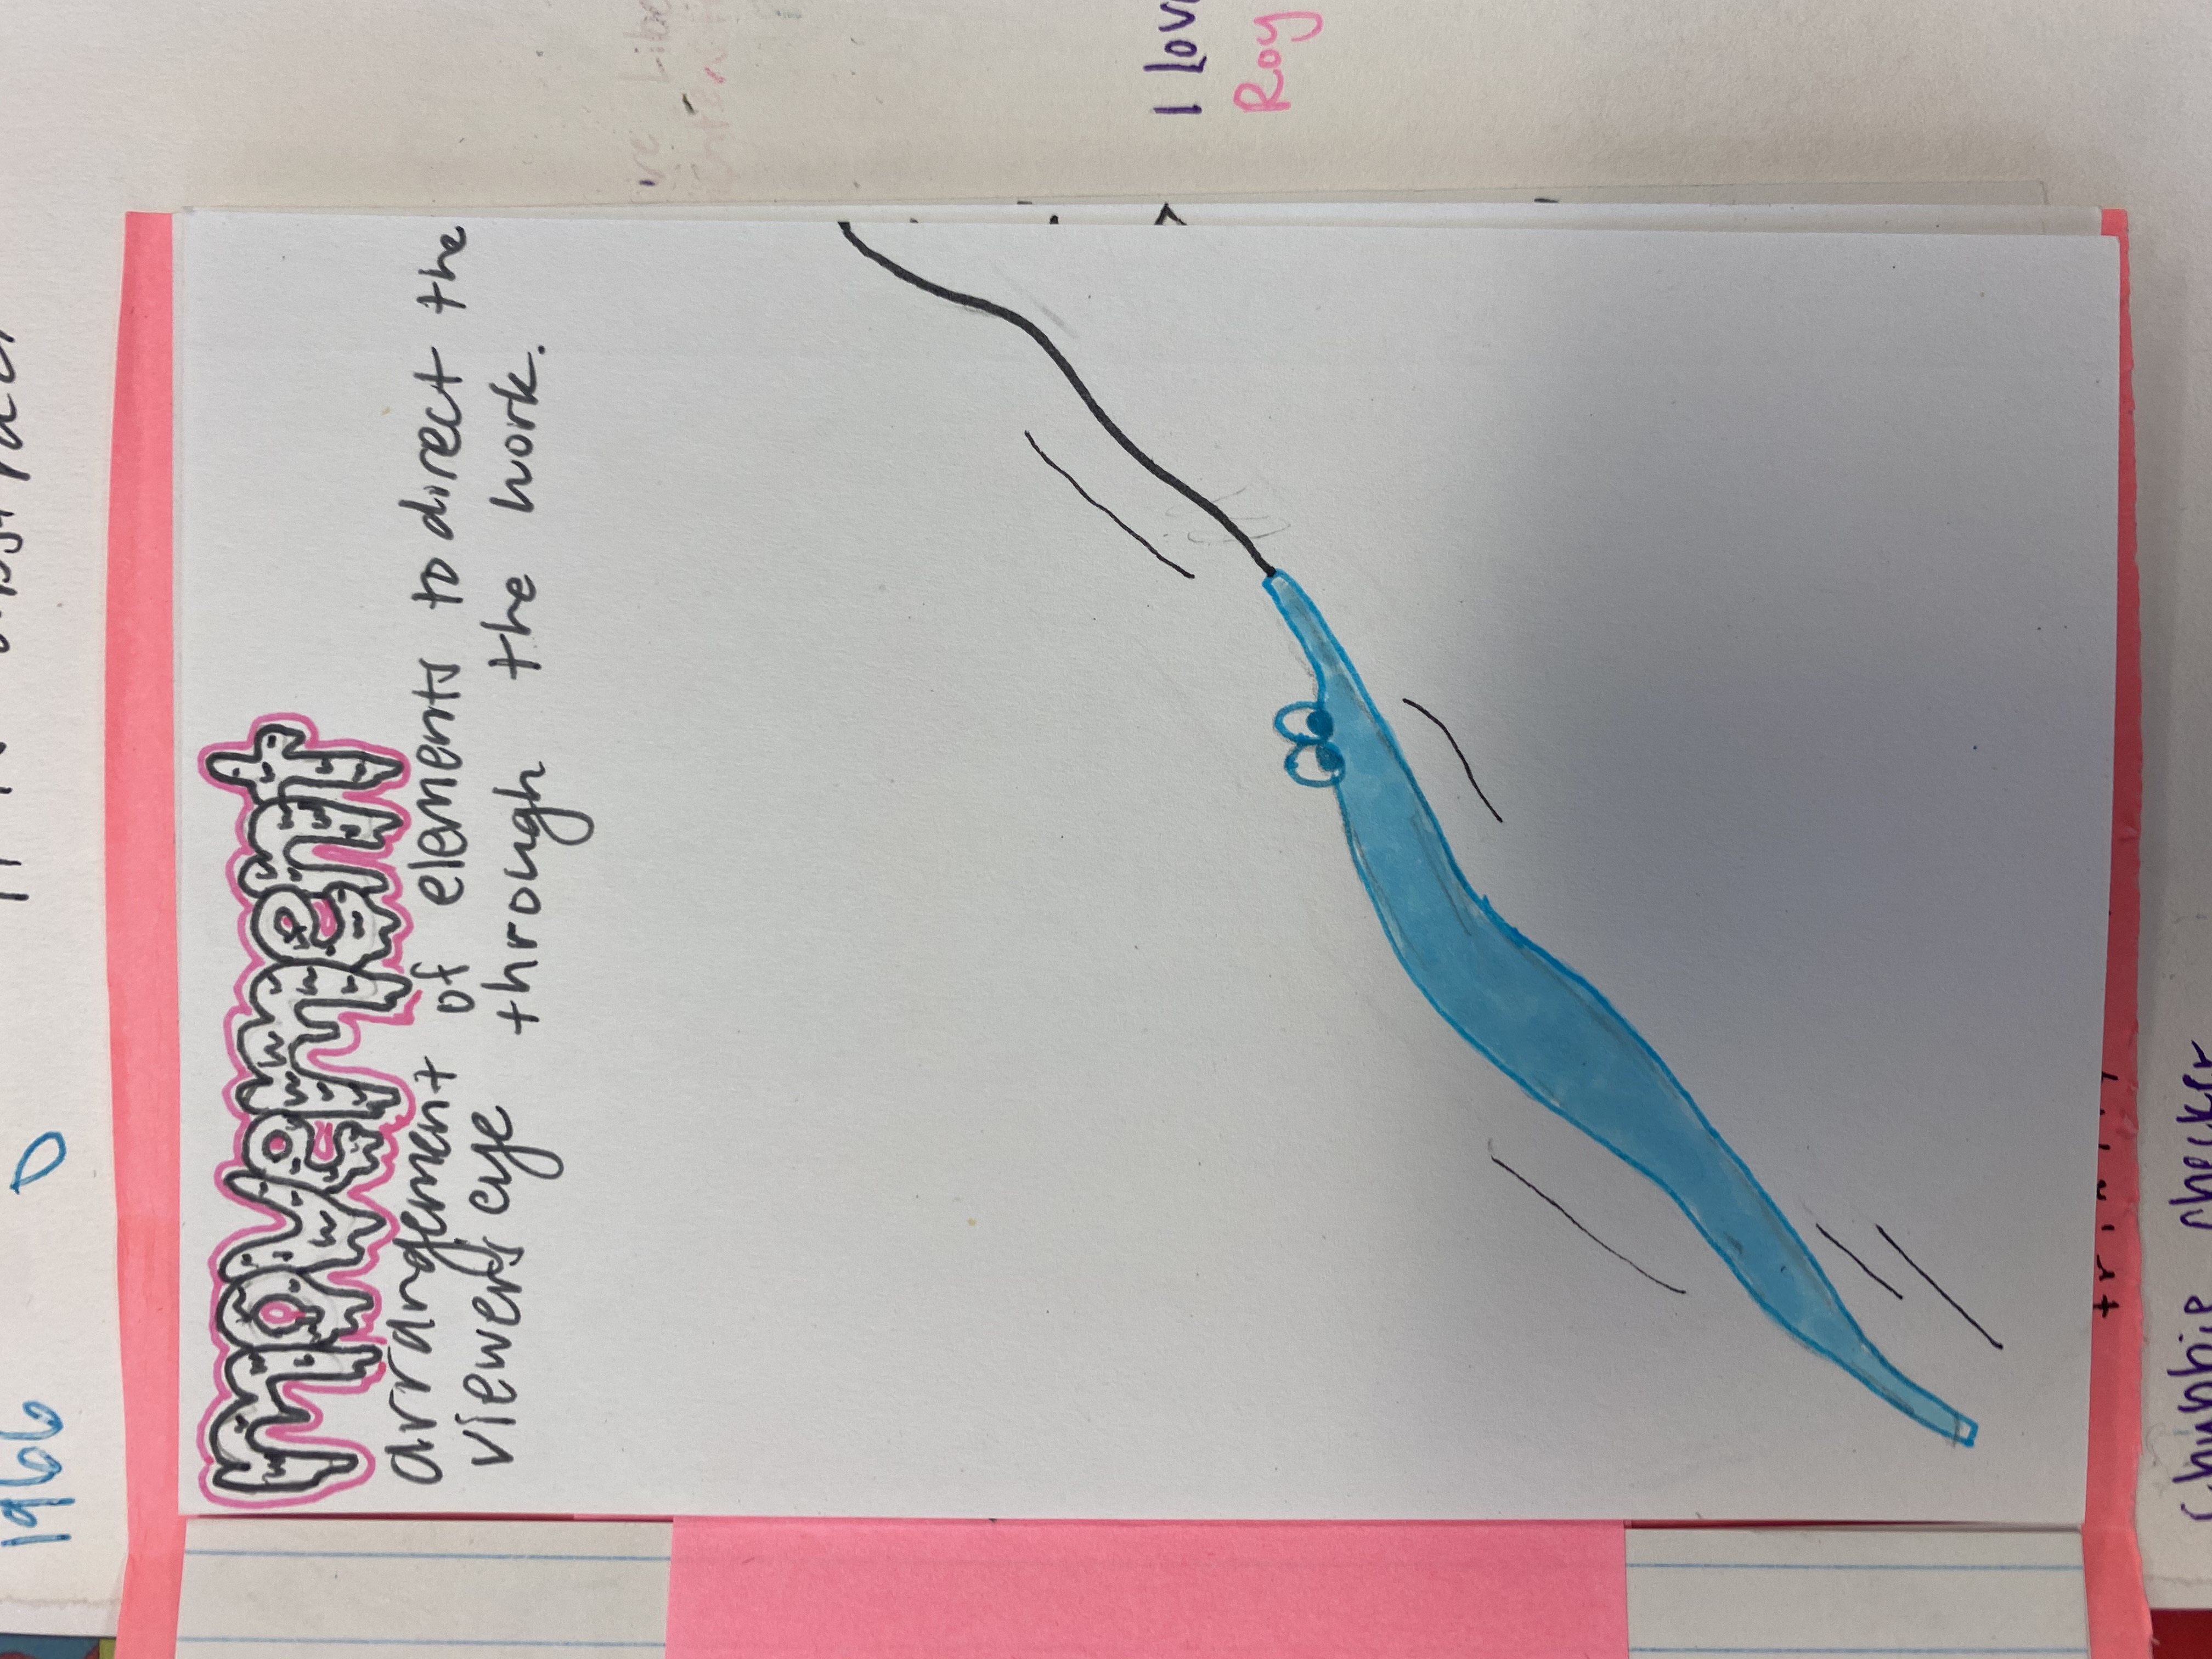 1966
movement
arrangement of elements to direct the
viewer's eye through the work.
I Lov
Roy
Chubbie checker